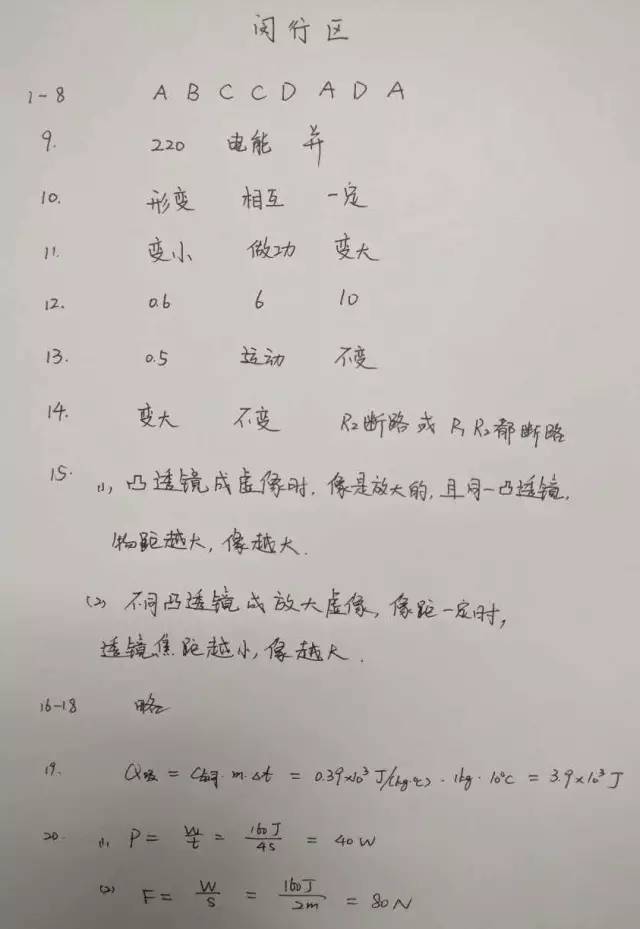 闵行区
1-8 A B C C D A D A
9. 220 电能 并
10. 形变 相互 一定
11. 变小 做功 变大
12. 0.6 6 10
13. 0.5 运动 不变
14. 变大 不变 R2断路 或 R1 R2都断路
15. (1) 凸透镜成虚像时,像是放大的,且同一凸透镜,
物距越大,像越大.
(2) 不同凸透镜成放大虚像,像距一定时,
透镜焦距越小,像越大.
16-18 略
19. Q吸 = C铜·m·Δt = 0.39×10³ J/(kg·℃)·1kg·10℃ = 3.9×10³ J
20. (1) P = W/t = 160J/4s = 40W
(2) F = W/s = 160J/2m = 80N